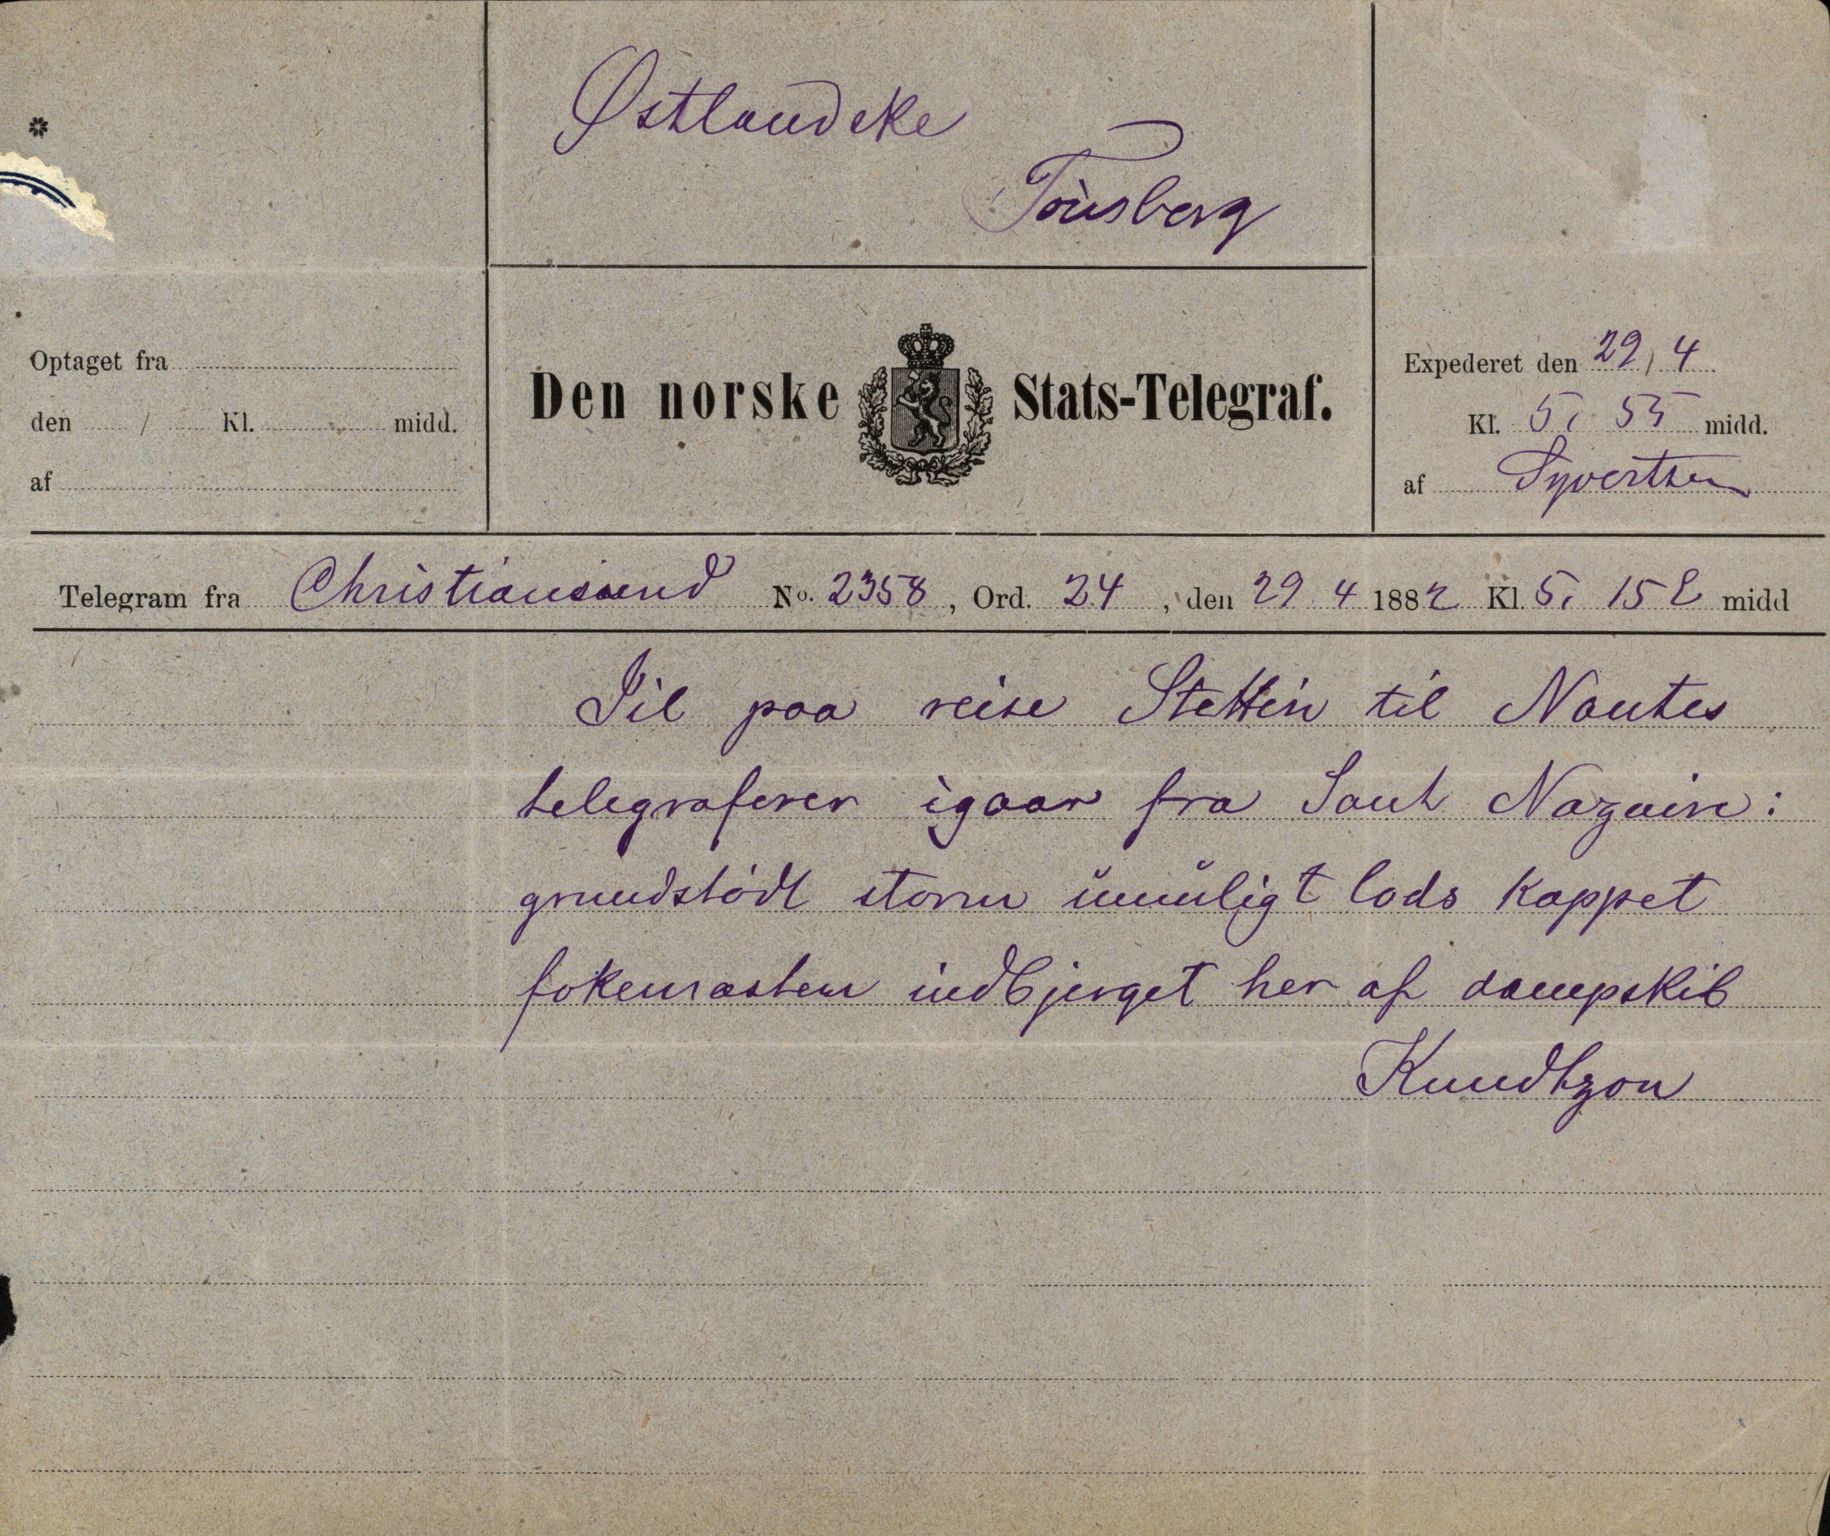 Østlandske
Tönsberg
Optaget fra
den / Kl. midd.
af
Den norske Stats-Telegraf.
Expederet den 29/4
Kl. 5. 55 midd.
af Syvertsen
Telegram fra Christiansund No. 2358, Ord. 24, den 29 4 1882 Kl. 5. 15 E midd
Iil paa reise Stettin til Nantes
telegraferer igaar fra Sant Nazaire:
grundstödt storm ümüligt lods kappet
fokemasten indbjerget her af dampskib
Knudtzon